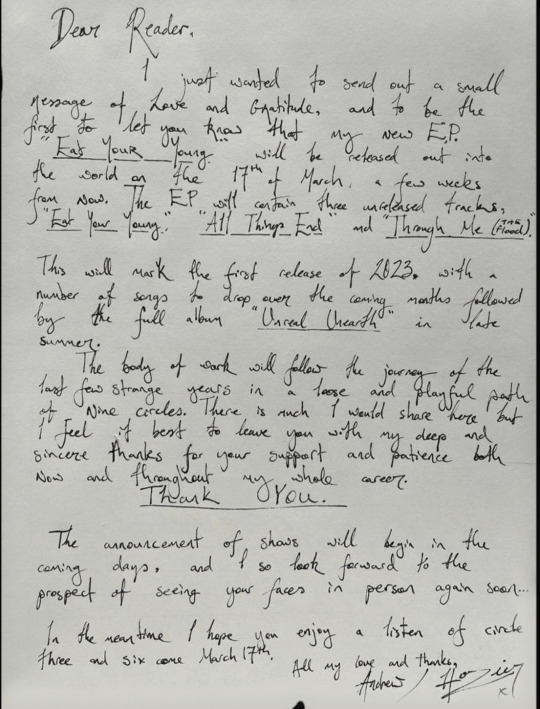 Dear Reader,
I just wanted to send out a small
message of Love and Gratitude, and to be the
first to let you know that my new E.P.
"Eat Your Young" will be released out into
the world on the 17th of March, a few weeks
from now. The EP will contain three unreleased tracks,
"Eat Your Young" "All Things End" and "Through Me (THE Flood)".
This will mark the first release of 2023. with a
number of songs to drop over the coming months followed
by the full album "Unreal Unearth" in late
summer.
The body of work will follow the journey of the
last few strange years in a loose and playful path
of Nine circles. There is much I would share here but
I feel it best to leave you with my deep and
sincere thanks for your support and patience both
now and throughout my whole career.
Thank You.
The announcement of shows will begin in the
coming days, and I so look forward to the
prospect of seeing your faces in person again soon...
In the meantime I hope you enjoy a listen of circle
three and six come March 17th.
All my love and thanks,
Andrew / Hozier
x